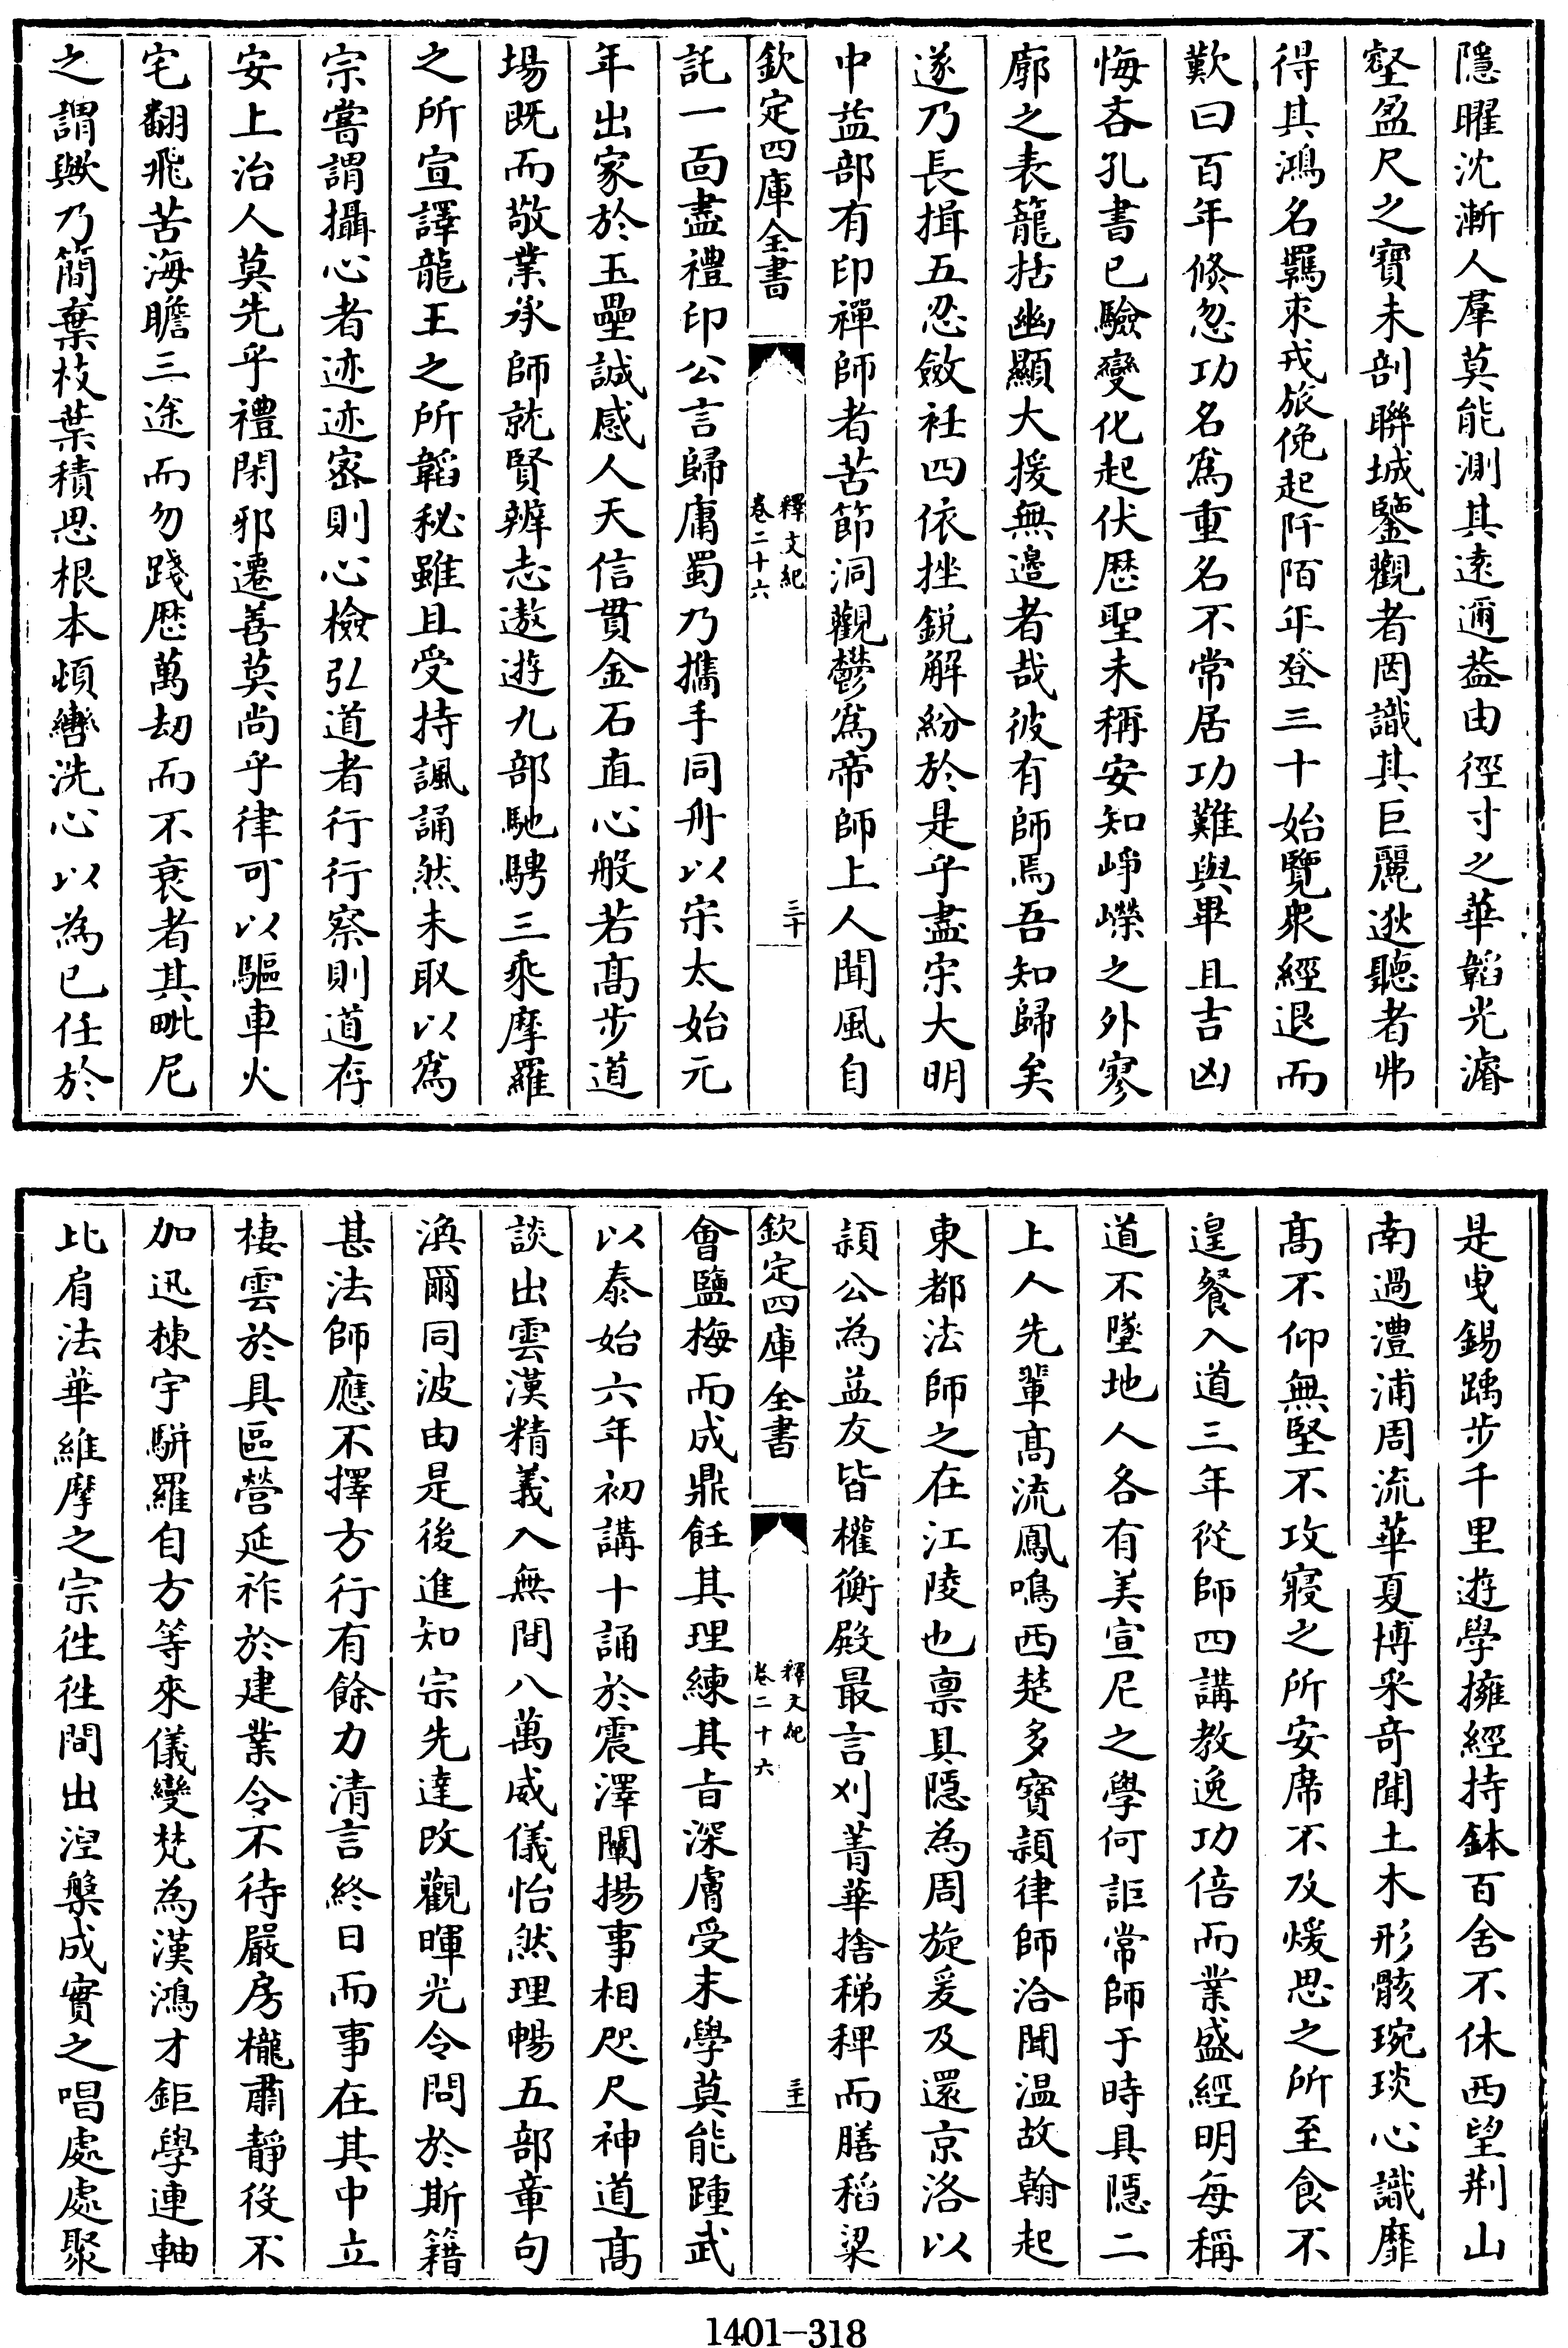 隱曜沈漸人羣莫能測其遠邇益由徑寸之華韜光濬
壑盈尺之寶未剖聯城鑒觀者罔識其巨麗逖聽者弗
得其鴻名羈束戎旅俛起阡陌年登三十始覽衆經退而
歎曰百年倏忽功名爲重名不常居功難與畢且吉凶
悔吝孔書已驗變化起伏歴聖未稱安知崢嶸之外寥
廓之表籠括幽顯大援無邊者哉彼有師焉吾知歸矣
遂乃長揖五忍斂衽四依挫鋭解紛於是乎盡宋大明
中益部有印禪師者苦節洞觀鬱爲帝師上人聞風自
欽定四庫全書
釋文紀
卷二十六
三十
託一面盡禮印公言歸庸蜀乃攜手同舟以宋太始元
年出家於玉壘誠感人天信貫金石直心般若髙步道
場既而敬業承師就賢辨志遨遊九部馳騁三乘摩羅
之所宣譯龍王之所韜秘雖且受持諷誦然未取以爲
宗嘗謂攝心者迹迹宻則心檢弘道者行行察則道存
安上治人莫先乎禮閑邪遷善莫尚乎律可以驅車火
宅翻飛苦海瞻三途而勿踐歴萬刼而不衰者其毗尼
之謂歟乃簡棄枝葉積思根本煩轡洗心以為已任於
是曵錫踽步千里遊學擁經持鉢百舍不休西望荆山
南過澧浦周流華夏博采奇聞土木形骸琬琰心識靡
髙不仰無堅不攻寢之所安席不及煖思之所至食不
遑餐入道三年從師四講教逸功倍而業盛經明每稱
道不墜地人各有美宣尼之學何詎常師于時具隱二
上人先輩髙流鳳鳴西楚多寶頴律師洽聞温故翰起
東都法師之在江陵也禀具隠為周旋爰及還京洛以
頴公為益友皆權衡殿最言刈菁華捨稊稗而膳稻粱
欽定四庫全書
釋文紀
卷二十六
三十一
會鹽梅而成鼎飪其理練其㫖深膚受末學莫能踵武
以泰始六年初講十誦於震澤闡揚事相咫尺神道髙
談出雲漢精義入無間八萬威儀怡然理暢五部章句
渙爾同波由是後進知宗先達改觀暉光令問於斯籍
甚法師應不擇方行有餘力清言終日而事在其中立
棲雲於具區營延祚於建業令不待嚴房櫳肅静役不
加迅棟宇駢羅自方等來儀變梵為漢鴻才鉅學連軸
比肩法華維摩之宗徃徃間出涅槃成實之唱處處聚
1401—318